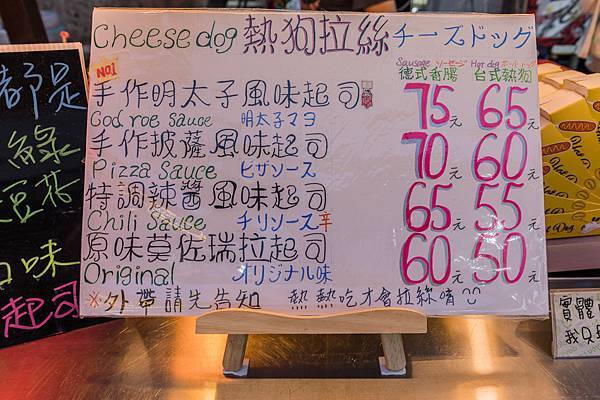 Cheese dog 熱狗拉絲 チーズドッグ
Sausage ソーセージ Hot dog ホットドッグ
NO1 德式香腸 台式熱狗
手作明太子風味起司 75元 65元
Cod roe sauce 明太子マヨ
手作披薩風味起司 70元 60元
Pizza Sauce ピザソース
特調辣醬風味起司 65元 55元
Chili Sauce チリソース辛
原味莫佐瑞拉起司 60元 50元
Original オリジナル味
※外帶請先告知 熱熱吃才會拉絲唷
都是
綠
豆花
口味
起司
實體
我只